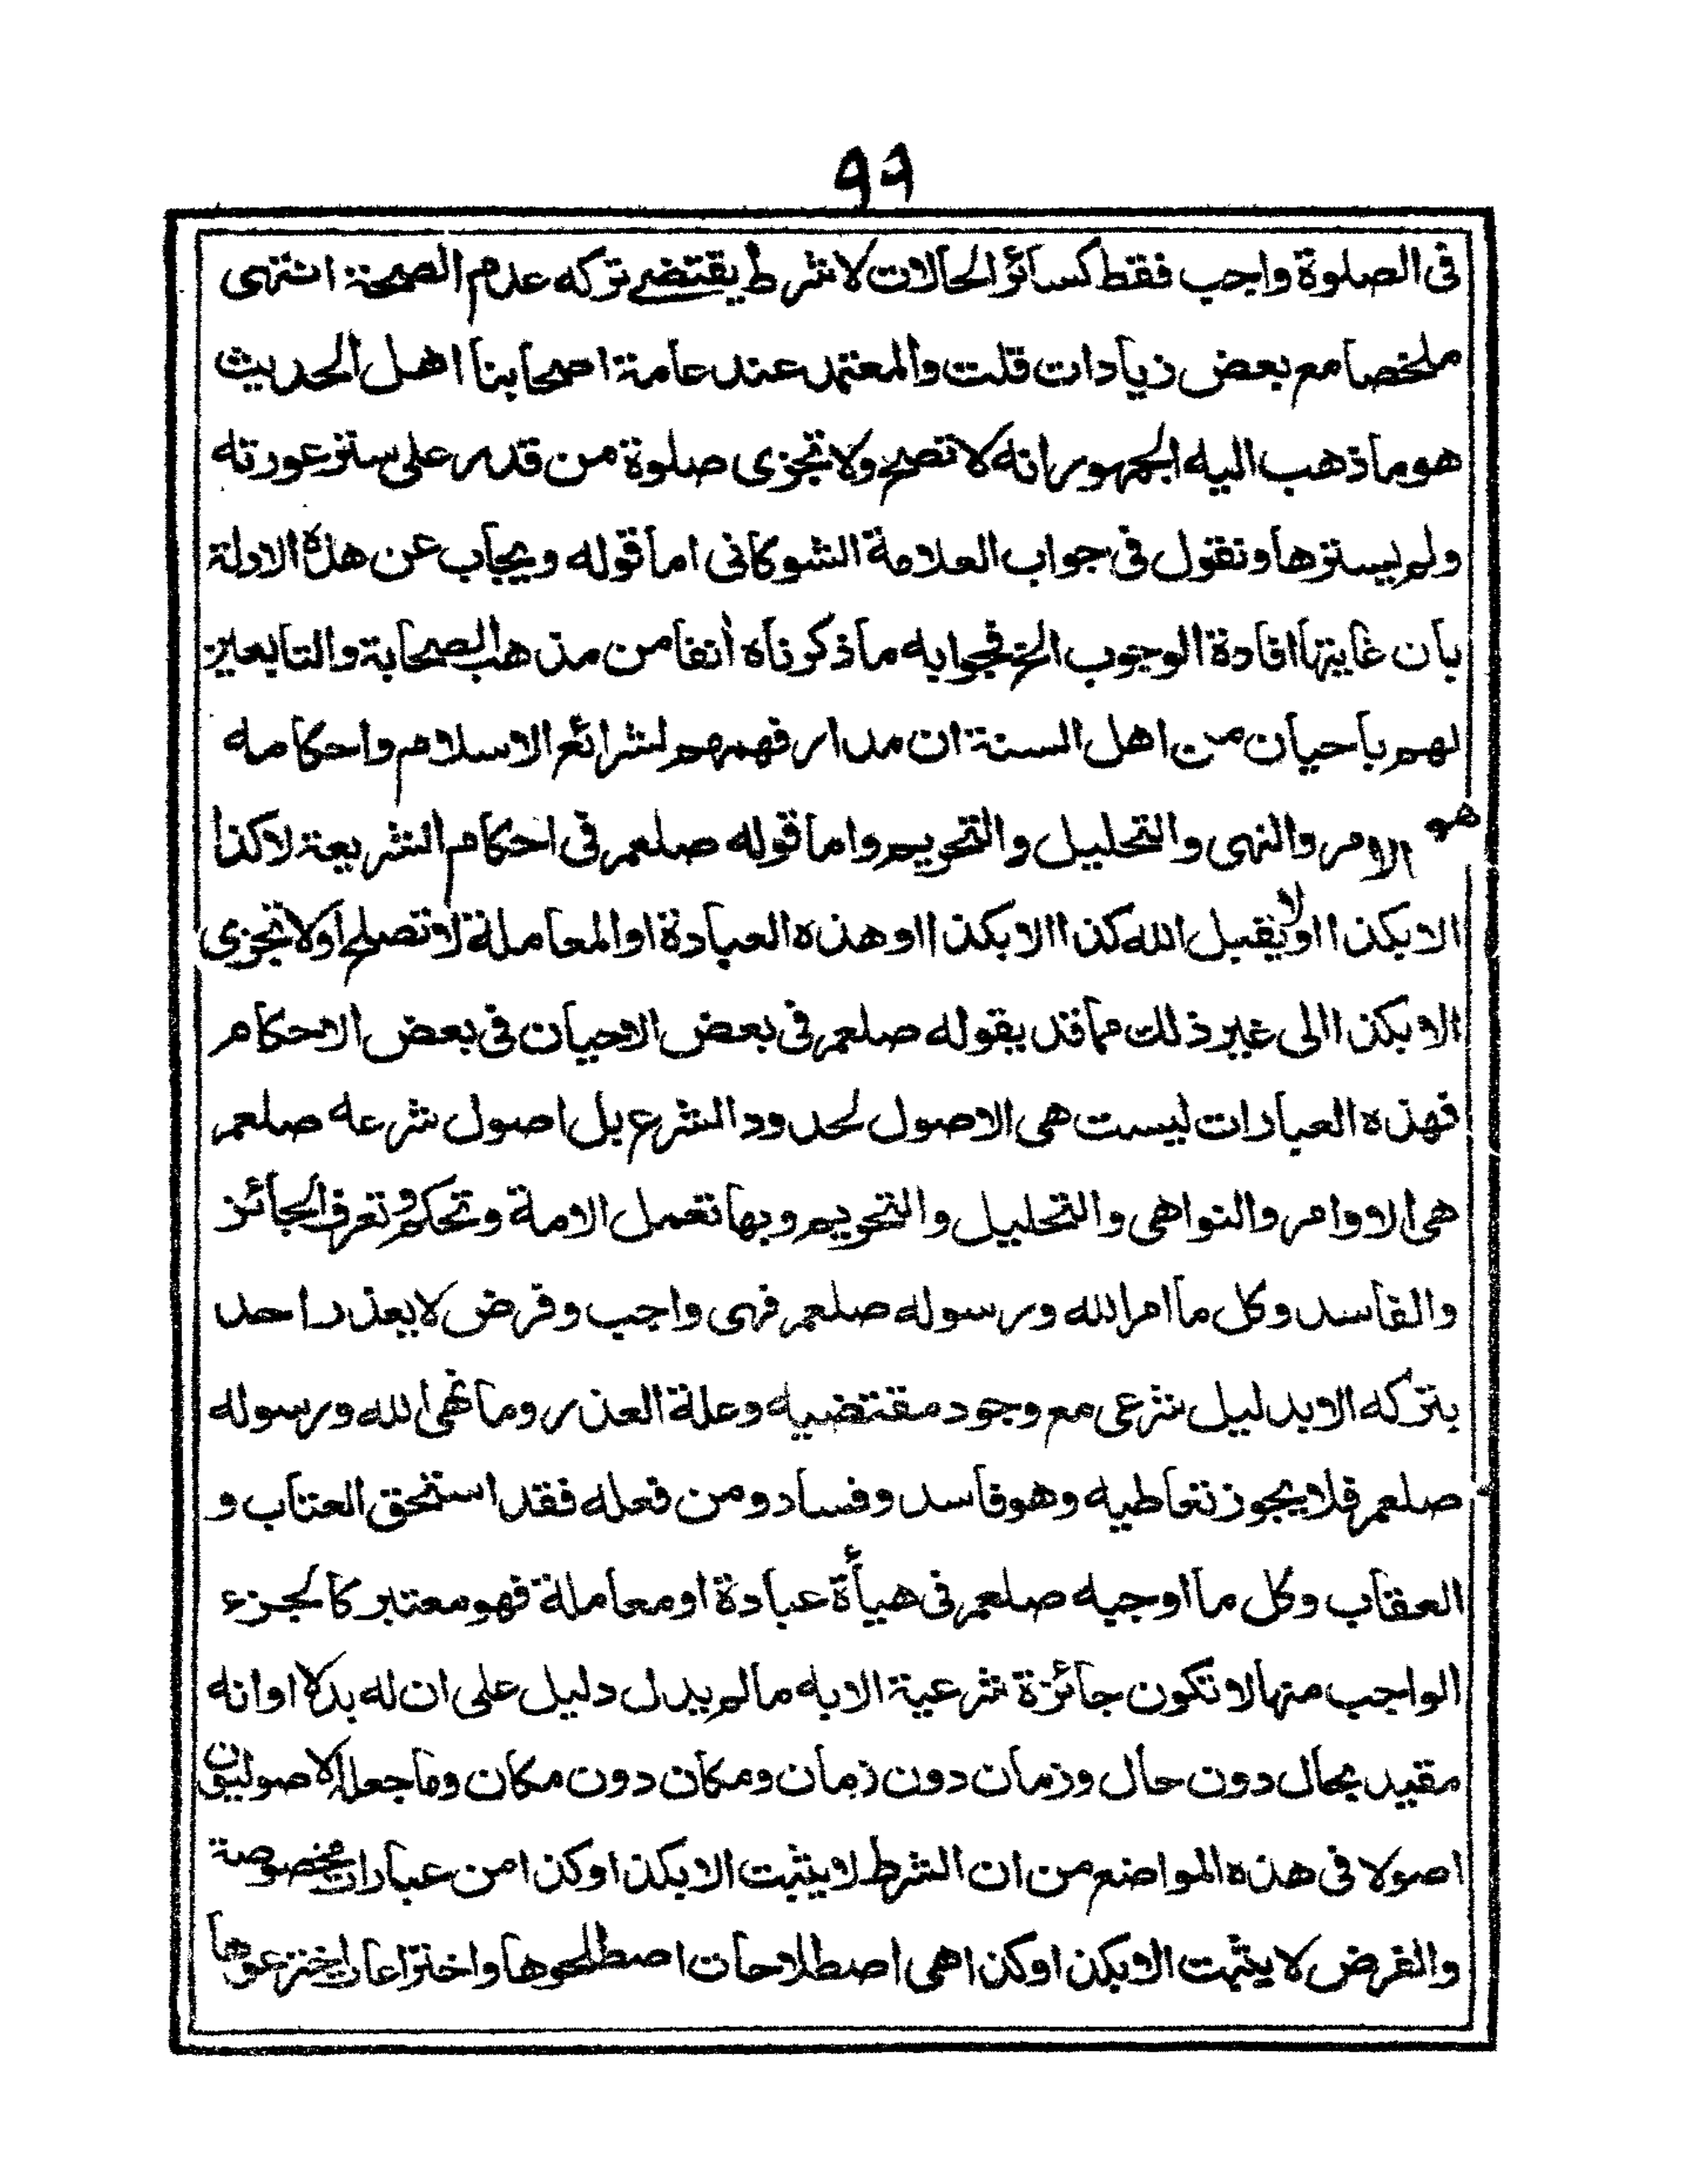 ٩٩
فى الصلوة واجب فقط كسائر الحالات لا شرط يقتضے تركه عدم الصحة انتهى
ملخصا مع بعض زيادات قلت والمعتمد عند عامة اصحابنا اهل الحديث
هو ما ذهب اليه الجمهور انه لا تصح ولا تجزى صلوة من قدر على ستر عورته
ولم يسترها ونقول فى جواب العلامة الشوكانى اما قوله ويجاب عن هذه الادلة
بان غايتها افادة الوجوب الخ فجوابه ما ذكرناه أنفا من مذهب الصحابة والتابعين
لهم باحيان من اهل السنة ان مدار فهمهم لشرائع الاسلام واحكامه
هو الامر والنهى والتحليل والتحريم واما قوله صلعم فى احكام الشريعة لا كذا
الا بكذا او لا يقبل الله كذا الا بكذا او هذه العبادة او المعاملة لا تصلح او لا تجزى
الا بكذا الى غير ذلك مما قد يقوله صلعم فى بعض الاحيان فى بعض الاحكام
فهذه العبارات ليست هى الاصول لحدود الشرع بل اصول شرعه صلعم
هى الاوامر والنواهى والتحليل والتحريم وبها تعمل الامة وتحكم وتعرف الجائز
والفاسد وكل ما امر الله ورسوله صلعم فهى واجب وفرض لا يعذر احد
بتركه الا بدليل شرعى مع وجود مقتضيه وعلة العذر وما نهى الله ورسوله
صلعم فلا يجوز تعاطيه وهو فاسد وفساد ومن فعله فقد استحق العتاب و
العقاب وكل ما اوجبه صلعم فى هيأة عبادة او معاملة فهو معتبر كالجزء
الواجب منها لا تكون جائزة شرعية الا به ما لم يدل دليل على ان له بدلا او انه
مقيد بحال دون حال وزمان دون زمان ومكان دون مكان وما جعله الاصوليون
اصولا فى هذه المواضع من ان الشرط لا يثبت الا بكذا وكذا من عبارات مخصوصة
والفرض لا يثبت الا بكذا وكذا هى اصطلاحات اصطلحوها واختراعات اخترعوها